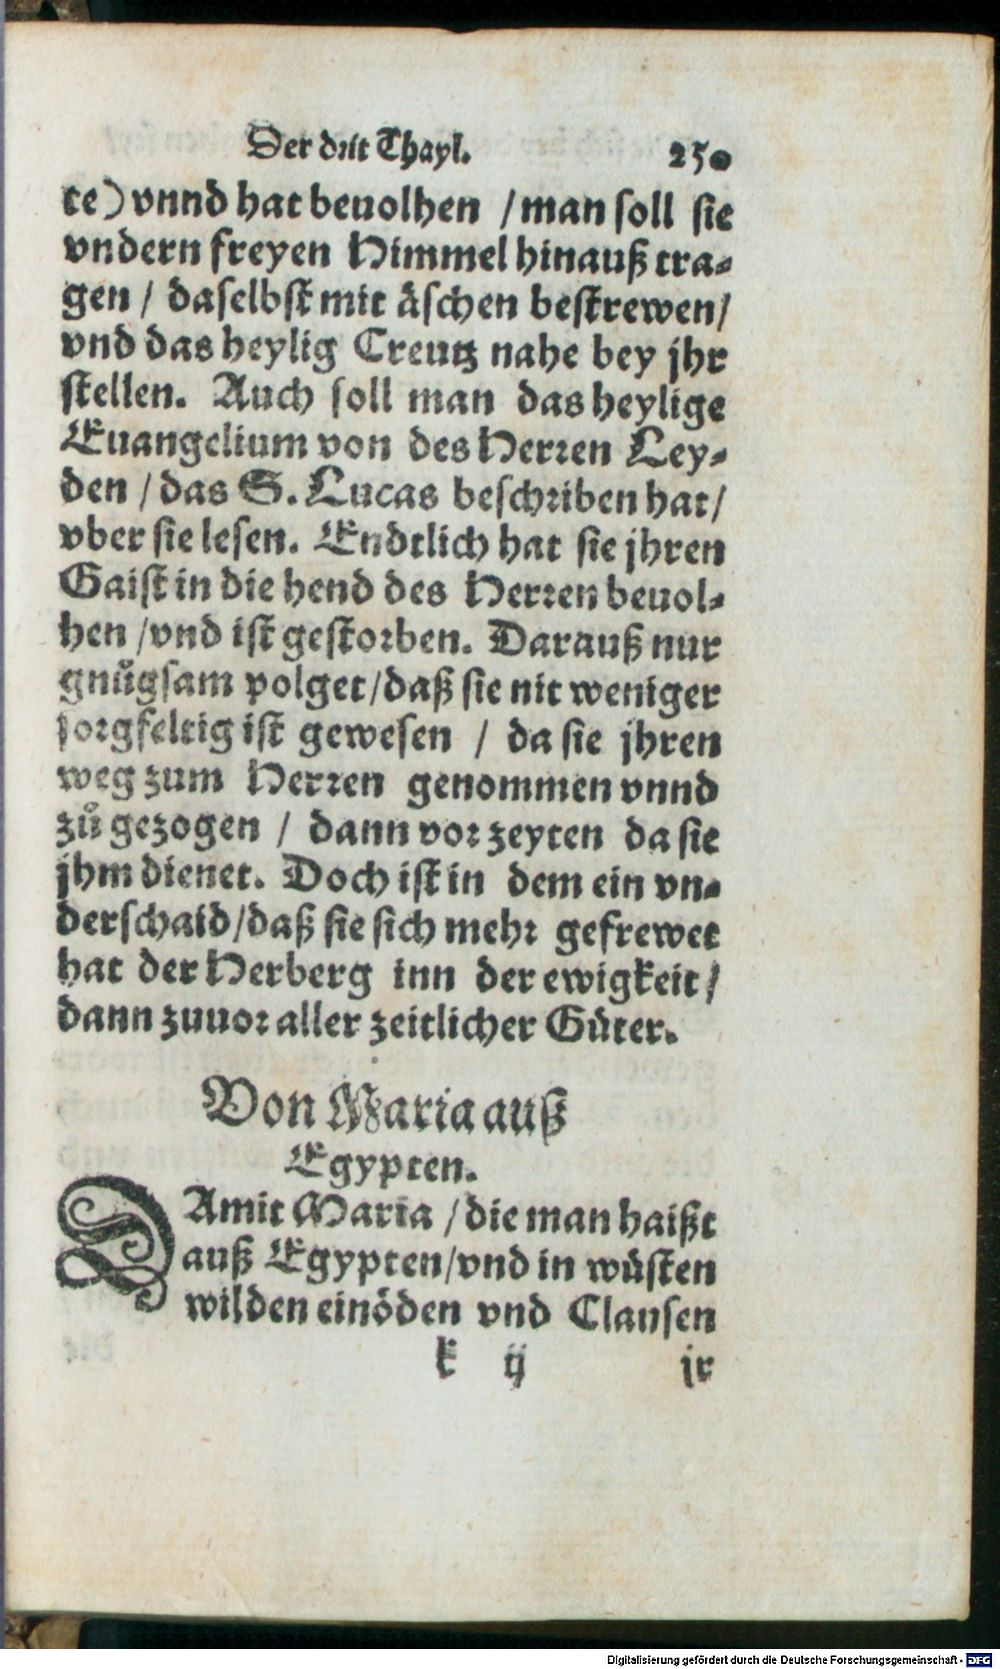 Der drit Thayl. 250
te) vnnd hat beuolhen / man soll sie
vndern freyen Himmel hinauß tra-
gen / daselbst mit äschen bestrewen /
vnd das heylig Creutz nahe bey jhr
stellen. Auch soll man das heylige
Euangelium von des Herren Ley-
den / das S. Lucas beschriben hat /
vber sie lesen. Endtlich hat sie jhren
Gaist in die hend des Herren beuol-
hen / vnd ist gestorben. Darauß nur
gnůgsam volget / daß sie nit weniger
sorgfeltig ist gewesen / da sie jhren
weg zum Herren genommen vnnd
zů gezogen / dann vor zeyten da sie
jhm dienet. Doch ist in dem ein vn-
derschaid / daß sie sich mehr gefrewet
hat der Herberg inn der ewigkeit /
dann zuuor aller zeitlicher Güter.
Von Maria auß
Egypten.
DAmit Maria / die man haißt
auß Egypten / vnd in wüsten
wilden einöden vnd Clausen
k ij jr
Digitalisierung gefördert durch die Deutsche Forschungsgemeinschaft - DFG